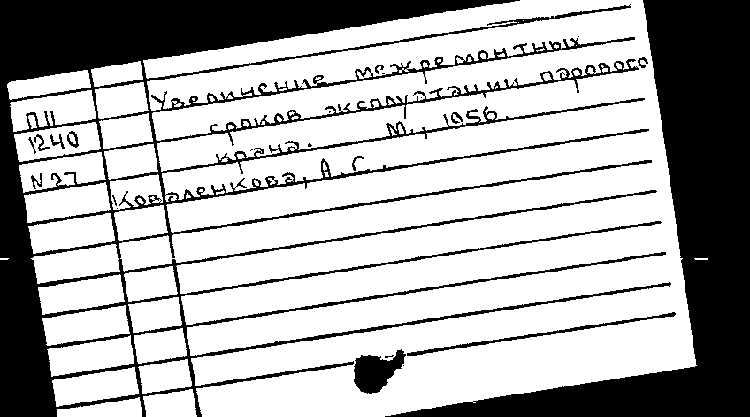 Увеличение межремонтных
П11 сроков эксплуатации парового
1240 крана. М., 1956.
N27
Коваленкова, А.С.